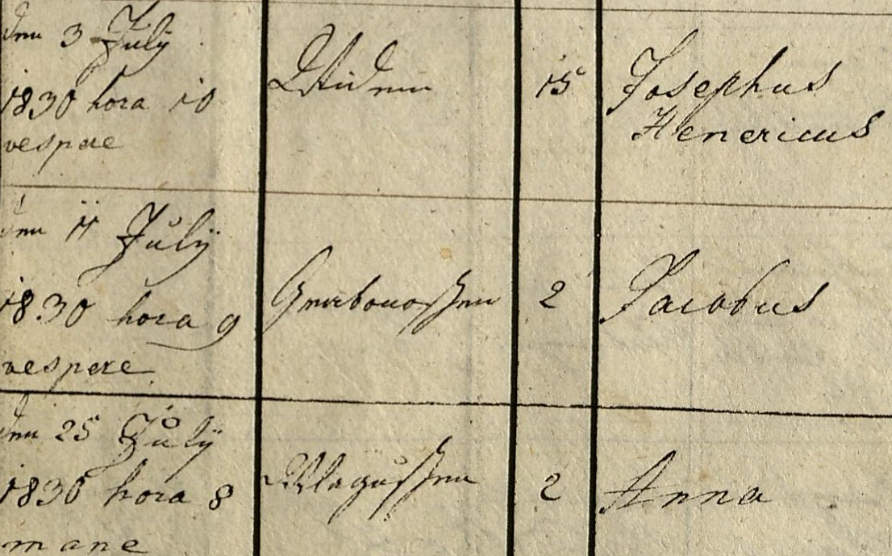 den 3 July
1830 hora 10
vespere
15
Josephus
Henericus
den 11 July
1830 hora 9
vespere
2
Jacobus
den 25 July
1830 hora 8
mane
2
Anna